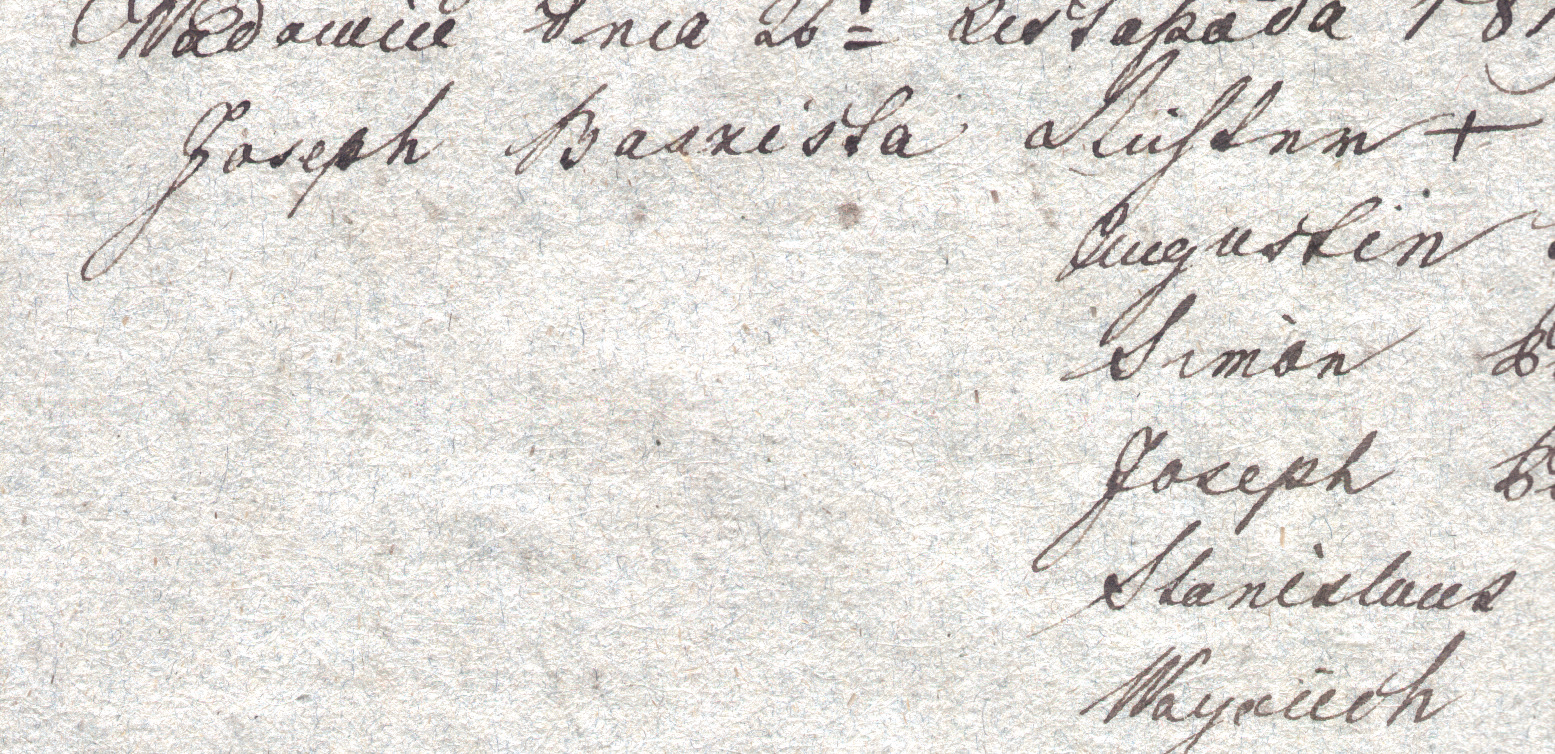 Wadowice dnia 26 = Listopada 181
Joseph Baxxista +
Augustin
Simon
Joseph
Stanislaus
Woyciech